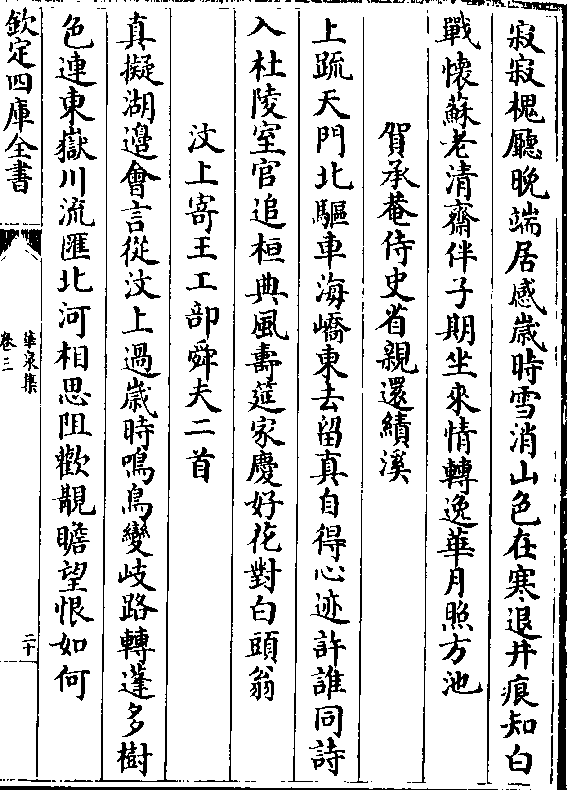 寂寂槐廳晩端居感歲時雪消山色在寒退井痕知白
戰懷蘇老清齋伴子期坐來情轉逸華月照方池
賀承菴侍史省親還績溪
上疏天門北驅車海嶠東去留真自得心迹許誰同詩
入杜陵室官追桓典風壽筵家慶好花對白頭翁
汶上寄王工部舜夫二首
真擬湖邉會言從汶上過歲時鳴鳥變岐路轉蓬多樹
色連東嶽川流匯北河相思阻歡覩瞻望恨如何
欽定四庫全書
華泉集
卷三
二十